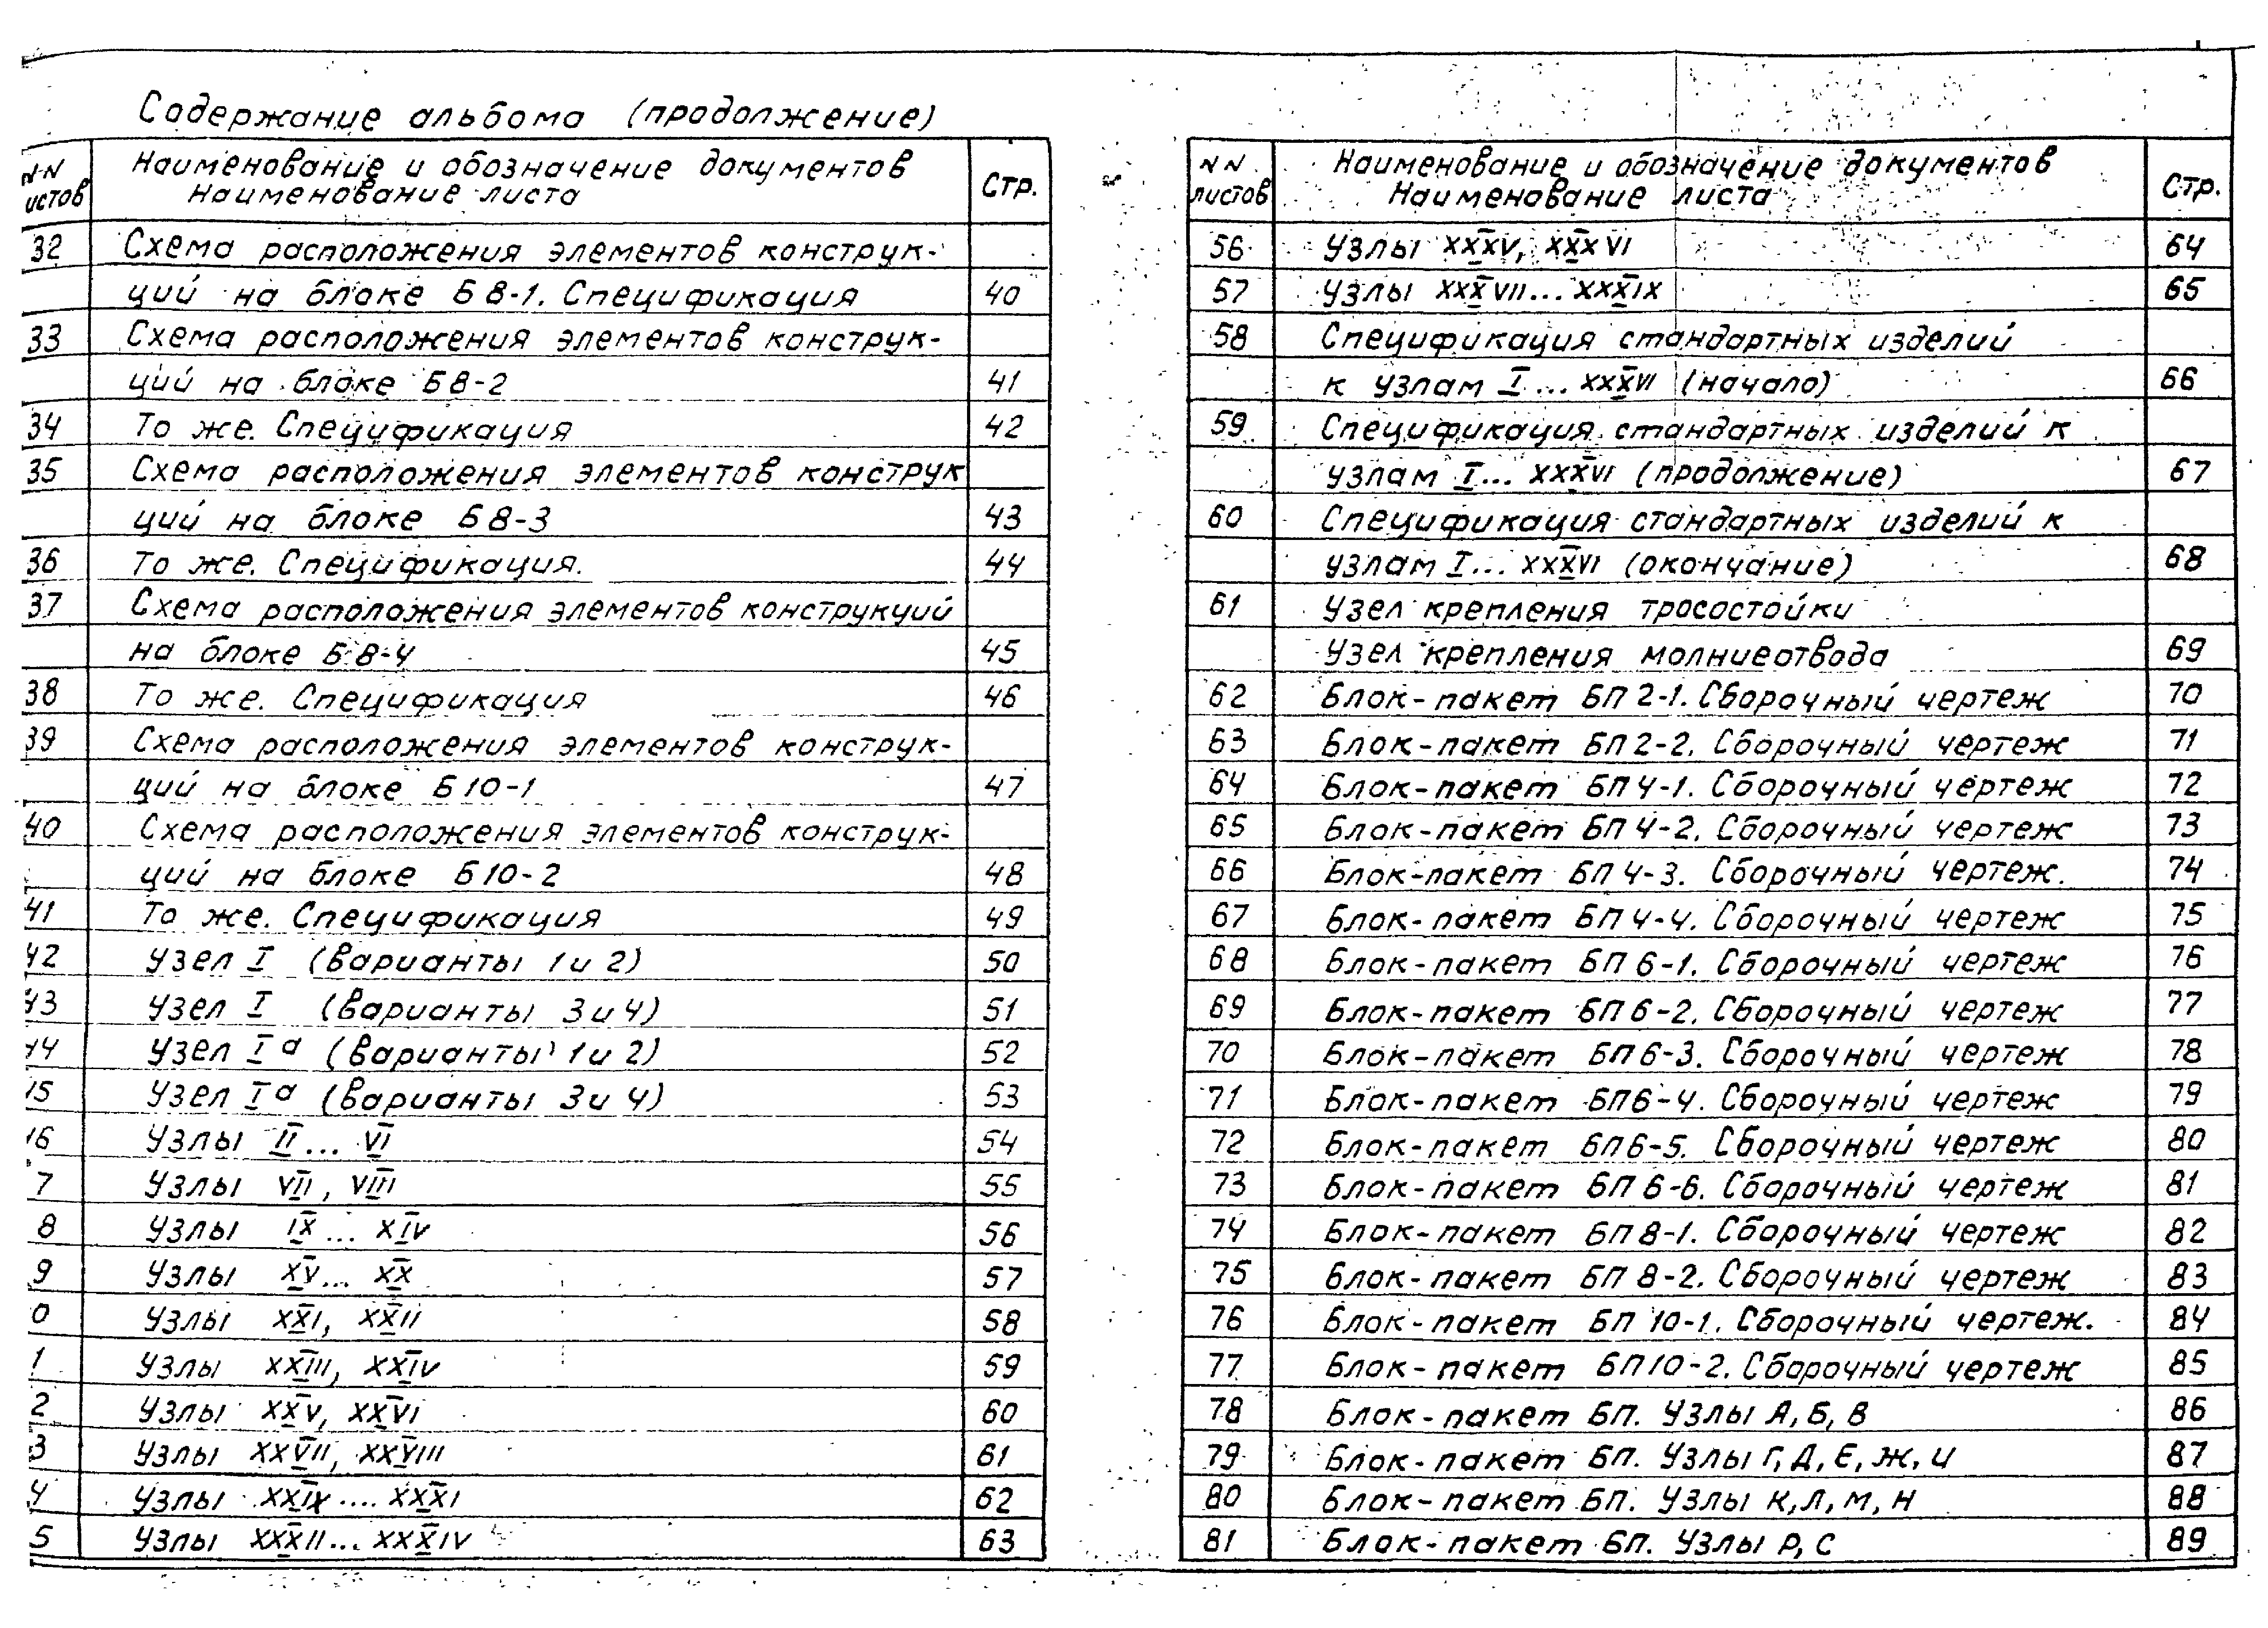 Содержание альбома (продолжение)
NN Наименование и обозначение документов Стр.
истов Наименование листа
32 Схема расположения элементов конструк-
ций на блоке Б8-1. Спецификация 40
33 Схема расположения элементов конструк-
ций на блоке Б8-2 41
34 То же. Спецификация 42
35 Схема расположения элементов конструк
ций на блоке Б8-3 43
36 То же. Спецификация. 44
37 Схема расположения элементов конструкций
на блоке Б8-4 45
38 То же. Спецификация 46
39 Схема расположения элементов конструк-
ций на блоке Б10-1 47
40 Схема расположения элементов конструк-
ций на блоке Б10-2 48
41 То же. Спецификация 49
42 Узел I (варианты 1 и 2) 50
43 Узел I (варианты 3 и 4) 51
44 Узел Iа (варианты 1 и 2) 52
45 Узел Iа (варианты 3 и 4) 53
46 Узлы II... VI 54
7 Узлы VII, VIII 55
8 Узлы IX... XIV 56
9 Узлы XV... XX 57
0 Узлы XXI, XXII 58
1 Узлы XXIII, XXIV 59
2 Узлы XXV, XXVI 60
3 Узлы XXVII, XXVIII 61
4 Узлы XXIX.... XXXI 62
5 Узлы XXXII... XXXIV 63
NN Наименование и обозначение документов Стр.
листов Наименование листа
56 Узлы XXXV, XXXVI 64
57 Узлы XXXVII... XXXIX 65
58 Спецификация стандартных изделий
к узлам I... XXXVI (начало) 66
59 Спецификация стандартных изделий к
узлам I... XXXVI (продолжение) 67
60 Спецификация стандартных изделий к
узлам I... XXXVI (окончание) 68
61 Узел крепления тросостойки
Узел крепления молниеотвода 69
62 Блок-пакет БП2-1. Сборочный чертеж 70
63 Блок-пакет БП2-2. Сборочный чертеж 71
64 Блок-пакет БП4-1. Сборочный чертеж 72
65 Блок-пакет БП4-2. Сборочный чертеж 73
66 Блок-пакет БП4-3. Сборочный чертеж. 74
67 Блок-пакет БП4-4. Сборочный чертеж 75
68 Блок-пакет БП6-1. Сборочный чертеж 76
69 Блок-пакет БП6-2. Сборочный чертеж 77
70 Блок-пакет БП6-3. Сборочный чертеж 78
71 Блок-пакет БП6-4. Сборочный чертеж 79
72 Блок-пакет БП6-5. Сборочный чертеж 80
73 Блок-пакет БП6-6. Сборочный чертеж 81
74 Блок-пакет БП8-1. Сборочный чертеж 82
75 Блок-пакет БП8-2. Сборочный чертеж 83
76 Блок-пакет БП10-1. Сборочный чертеж. 84
77 Блок-пакет БП10-2. Сборочный чертеж 85
78 Блок-пакет БП. Узлы А, Б, В 86
79 Блок-пакет БП. Узлы Г, Д, Е, Ж, И 87
80 Блок-пакет БП. Узлы К, Л, М, Н 88
81 Блок-пакет БП. Узлы Р, С 89